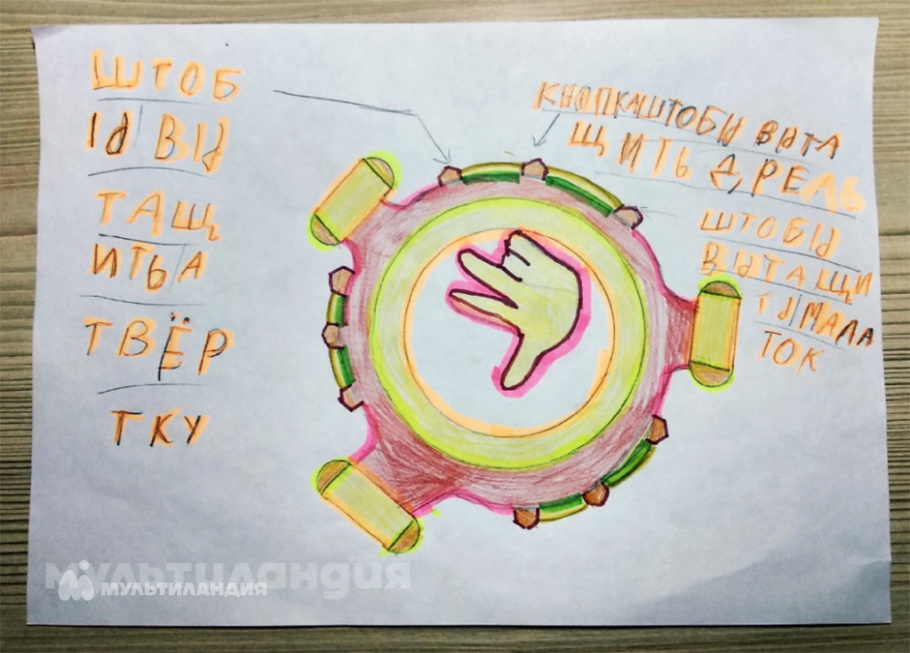 ШТОБ
Ы ВЫ
ТАЩ
ИТЬ А
ТВЁР
ТКУ
КНОПКАШТОБЫ ВЫТА
ЩИТЬ ДРЕЛЬ
ШТОБЫ
ВЫТАЩИ
ТЫМАЛА
ТОК
мультиландия
МУЛЬТИЛАНДИЯ